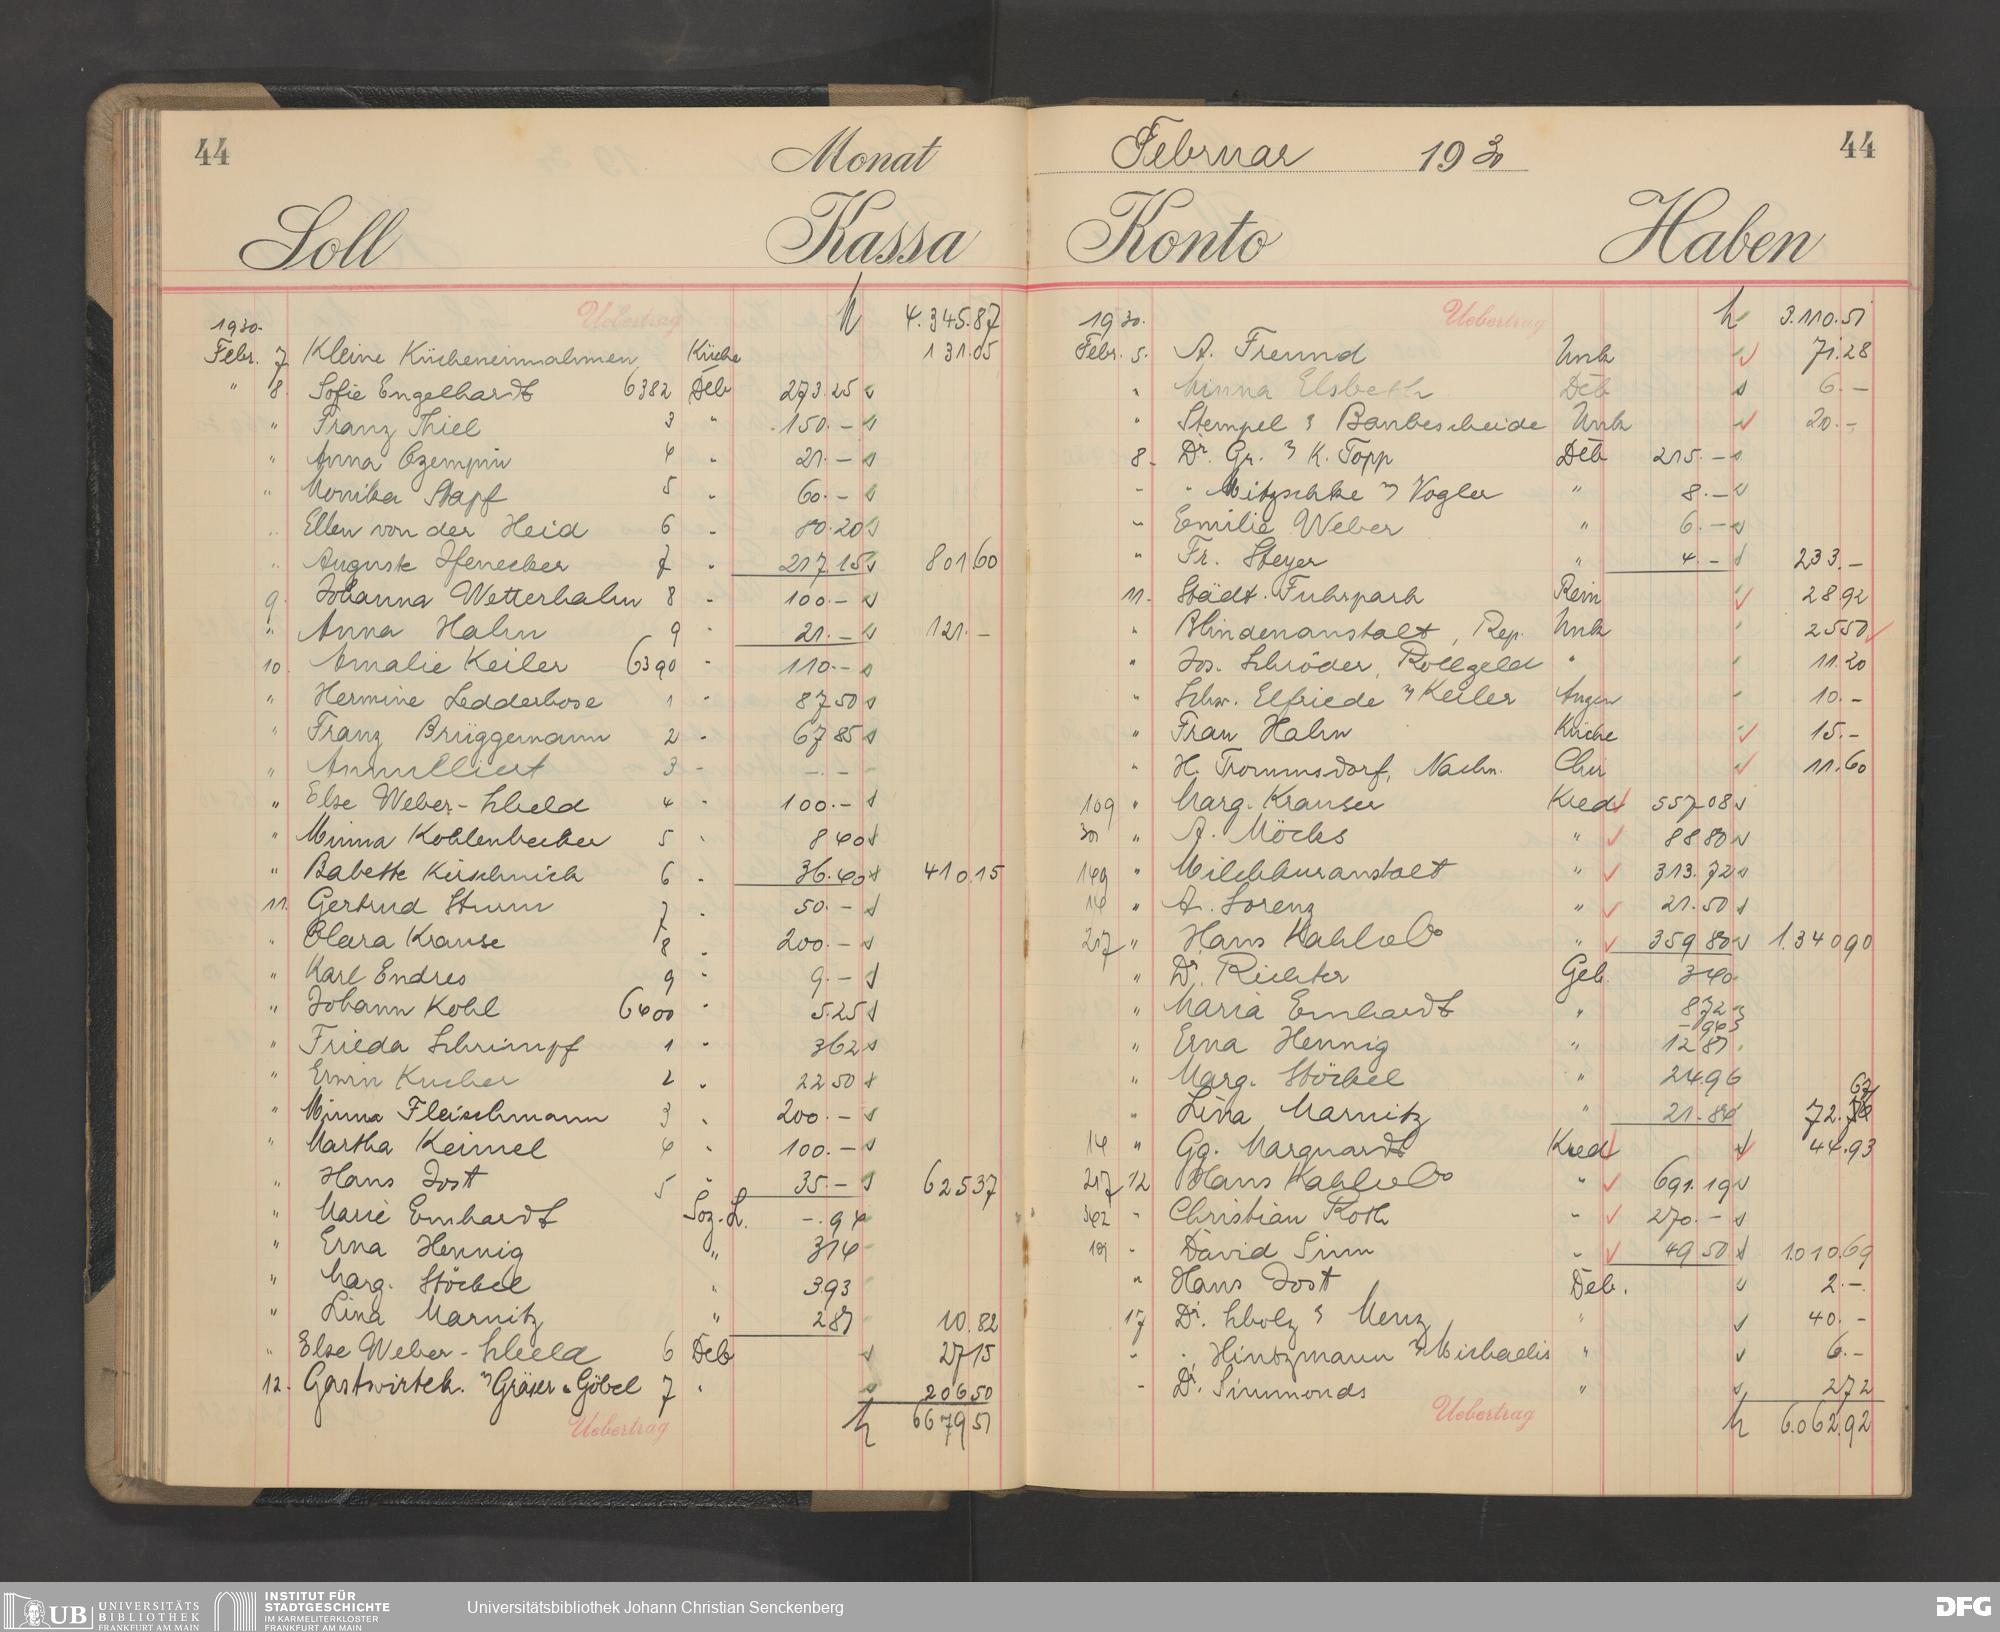 44 Monat
Soll Kassa
Uebertrag 4.345.87
1930.
Febr. 7 Kleine Kücheneinnahmen Küche 131.05
" 8. Sofie Engelhardt 6382 Deb 273.25
" Franz Thiel 3 " 150.-
" Anna Czempin 4 " 21.-
" Monika Stapf 5 " 60.-
" Ellen von der Heid 6 " 80.20
" Auguste 7 " 217.15 801.60
9. Johanna Wetterhahn 8 " 100.-
" Anna Hahn 9 " 21.- 121.-
10. Amalie Keiler 6390 " 110.-
" Hermine Ledderbose 1 " 87 50
" Franz Brüggemann 2 " 67 85
" Annulliert 3 - -.-
" Else Weber - Scheld 4 " 100.-
" Minna Kohlenbecker 5 " 8 40
" Babette 6 " 36.40 410.15
11. Gertrud Sturm 7 " 50.-
" Clara Krause 8 " 200.-
" Karl Endres 9 " 9.-
" Johann Kohl 6400 " 5.25
" Frieda Schrimpf 1 " 3 62
" Erwin Kucher 2 " 22 50
" Minna Fleischmann 3 " 200.-
" Martha Keimel 4 " 100.-
" Hans Jost 5 " 35.- 625 37
" Marie Emhardt Soz. L. -.94
" Erna Hennig " 3 14
" Marg. Stöckel " 3.93
" Lina Marnitz " 2 81 10.82
" Else Weber - Scheld 6 Deb 27 15
12. Gastwirtsh. Gräser u Göbel 7 " 206 50
Uebertrag 6679 51
Februar 1930 44
Konto Haben
Uebertrag 3.110.51
1930.
Febr. 5. A. Freund Unk 71.28
" Minna Elsbeth Deb 6.-
" Stempel & Banbescheide Unk 20.-
8. Dr. Gr. K. Topp Deb 215.-
" " Mitzschke Vogler " 8.-
" Emilie Weber " 6.-
" Fr. Steyer " 4.- 233.-
11. Städt. Fuhrpark Rein 28.92
" Blindenanstalt, Rep. Unk 25 50
" Jos. Schröder, Rollgeld " 11.20
" Schw. Elfriede Keiler Augen 10.-
" Frau Hahn Küche 15.-
" H. Trommsdorf, Nachn. Chir 11.60
109 " Marg. Krauser Kred 557.08
" A. Möcks " 88 80
149 " Milchkuranstalt " 313.72
14 " A. Lorenz " 21.50
217 " Hans Kahl u Co " 359 80 1.340 90
" Dr. Richter Geb. 3 40
" Maria Emhardt " 8 72
-94
" Erna Hennig " 12 81
" Marg. Stöckel " 24.96
" Lina Marnitz " 21.84 72.67
14 " Gg. Marquardt Kred 44.93
217 12 Hans Kahl u Co " 691.19
342 " Christian Roth " 270.-
181 " David Sinn " 49 50 1.010.69
" Hans Jost Deb. 2.-
17 Dr. Scholz & Menz " 40.-
" " Hintzmann Michaelis " 6.-
" Dr. Simmonds " 2 72
Uebertrag 6.062.92
UB UNIVERSITÄTS
BIBLIOTHEK
FRANKFURT AM MAIN
INSTITUT FÜR
STADTGESCHICHTE
IM KARMELITERKLOSTER
FRANKFURT AM MAIN
Universitätsbibliothek Johann Christian Senckenberg
DFG